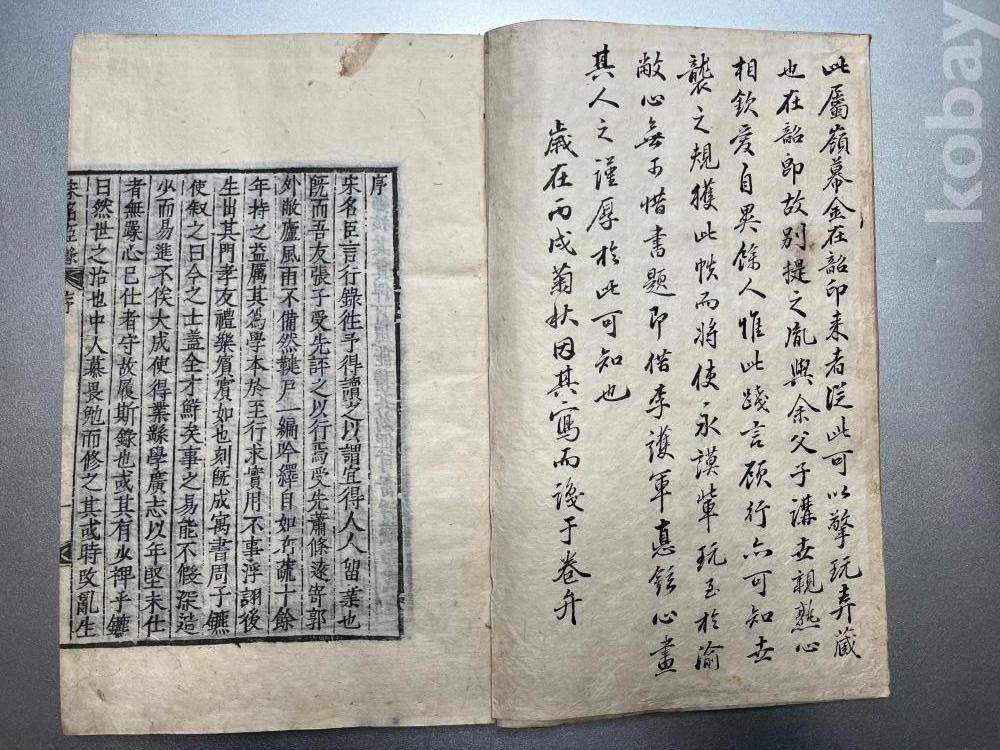 此屬嶺幕金在韶印来者從此可以擎玩弄藏
也在韶即故別提之胤與余父子講世親熟心
相欽愛自異餘人惟此踐言顧行亦可知世
襲之規獲此帙而將使永謨軰玩至於渝
敝心無所惜書題即借李護軍 心畫
其人之謹厚於此可知也
歲在丙戌菊秋因其寫而 于卷弁
序
宋名臣言行錄徃予得讀之以謂宜得人人留一葉也
旣而吾友張子受先評之以行焉受先蕭條遠寄郭
外敝廬風雨不備然 戸一編吟繹自如布蔬十餘
年持之益厲其爲學本於至行求實用不事浮詡後
生出其門孝友禮樂 如也刻旣成寓書周子鑣
使叙之曰今之士蓋全才鮮矣事之易能不假深造
少而易進不俟大成使得業繇學廣志以年堅未仕
者無躁心已仕者守故履斯錄也或其有少裨乎鑣
曰然世之治也中人慕畏勉而修之其或時改亂生
宋名臣錄 序 一
kobay